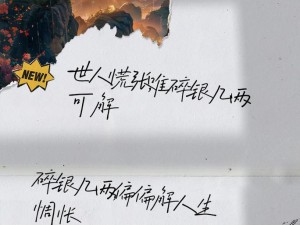 NEW!
世人慌张唯碎银几两
可解
碎银几两偏偏解人生
惆怅